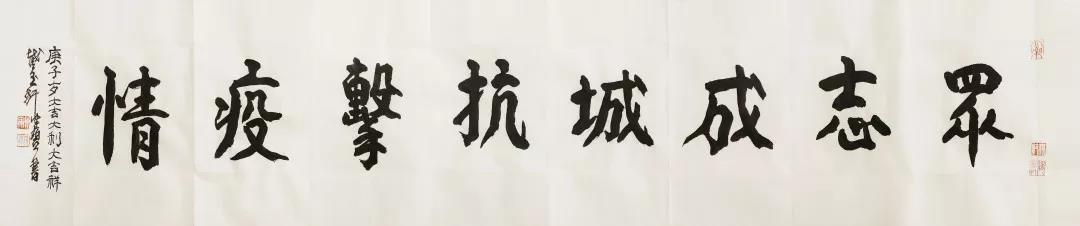 眾志成城抗擊疫情
庚子歲大吉大利大吉祥